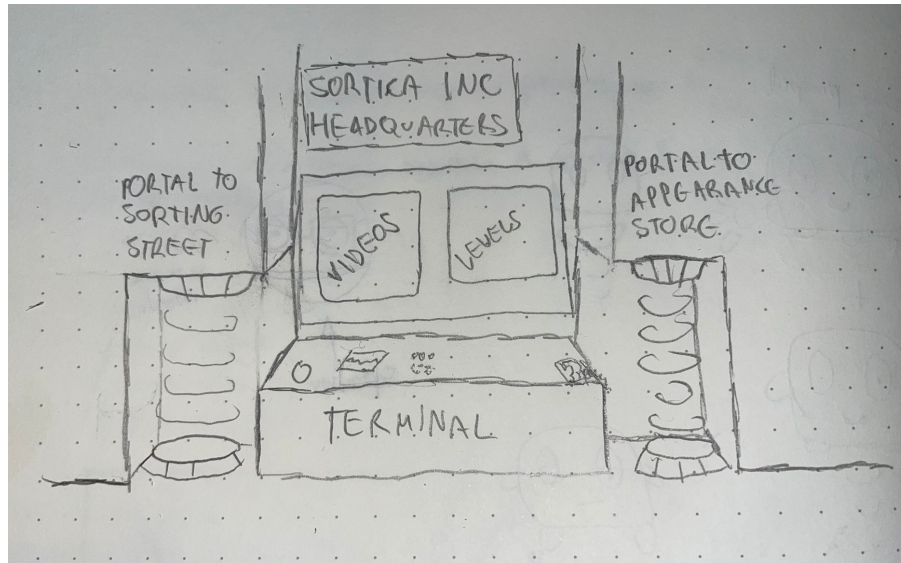 SORTIKA INC
HEADQUARTERS
PORTAL TO
SORTING
STREET
VIDEOS
LEVELS
PORTAL TO
APPEARANCE
STORE
TERMINAL